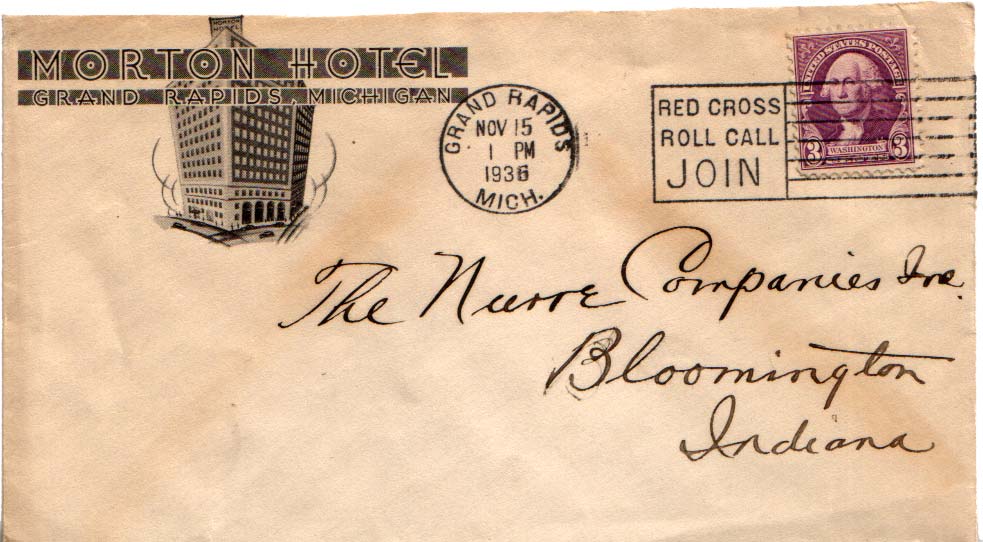 MORTON HOTEL
MORTON HOTEL
GRAND RAPIDS, MICHIGAN
GRAND RAPIDS
NOV 15
1 PM
1936
MICH.
RED CROSS
ROLL CALL
JOIN
UNITED STATES POSTAGE
3 WASHINGTON 3
The Nurre Companies Inc.
Bloomington
Indiana